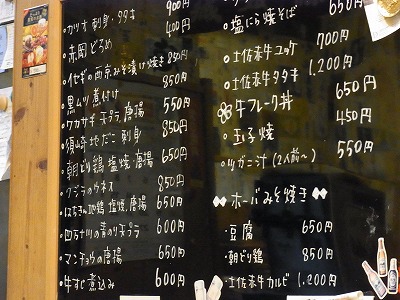 ・カツオ刺身、タタキ 900円
・赤岡どろめ 400円
・イセギの西京みそ漬け焼き 850円
・黒ムツ煮付け 850円
・ワカサギ天ぷら、唐揚 550円
・須崎地だこ刺身 850円
・朝どり鶏 塩焼、唐揚 650円
・クジラのウネス 850円
・はちきん地鶏 塩焼、唐揚 650円
・四万十ノリの青のり天ぷら 600円
・マンボウの唐揚 650円
・牛すじ煮込み 600円
・塩にら焼そば 650円
・土佐赤牛ユッケ 700円
・土佐赤牛タタキ 1,200円
牛フレーク丼 650円
・玉子焼 450円
・ツガニ汁(2人前〜) 550円
◆ホーバみそ焼き◆
・豆腐 650円
・朝どり鶏 850円
・土佐赤牛カルビ 1,200円